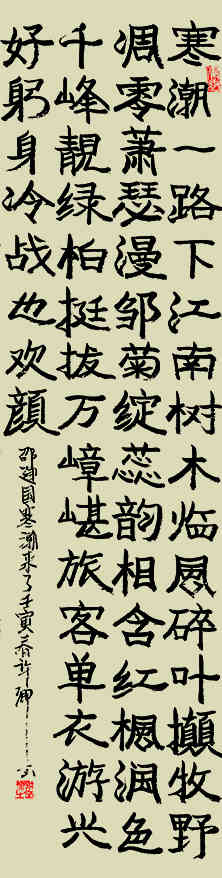 寒潮一路下江南树木临风碎叶攧牧野
凋零萧瑟漫邹菊绽蕊韵相含红枫润色
千峰靓绿柏挺拔万嶂嵁旅客单衣游兴
好躬身冷战也欢颜
寒潮来了壬寅春